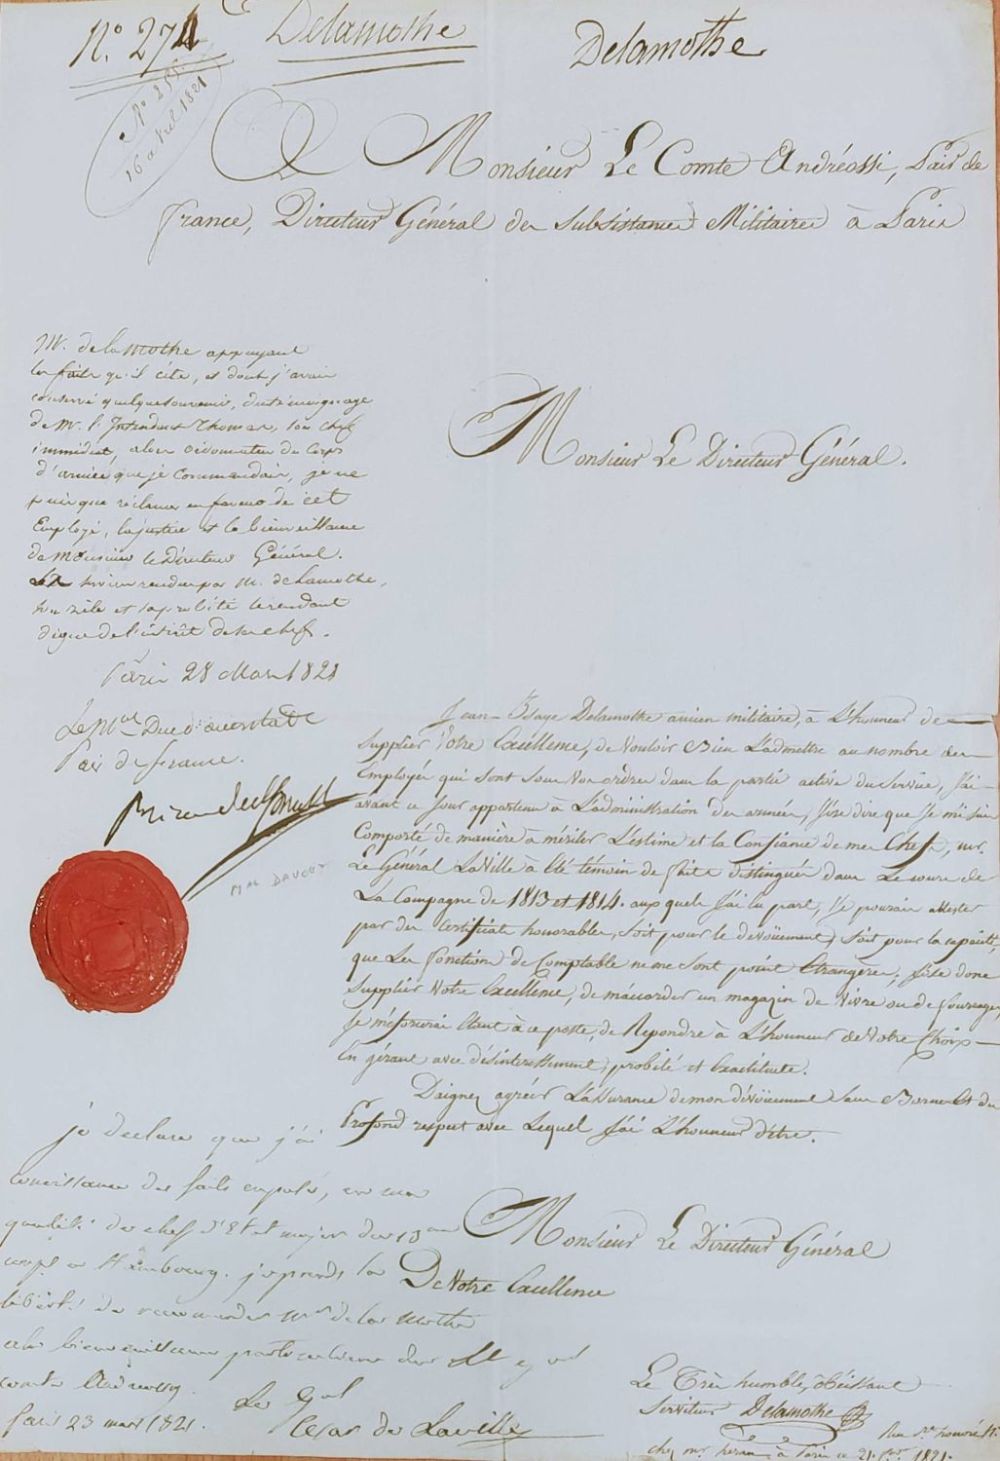 N.° 274
Delamothe
Delamothe
N° 255
16 avril 1821
A Monsieur Le Comte Andréossi, Pair de
france, Directeur Général des Subsistances Militaires à Paris
M. de la Mothe appuyant
les faits qu'il cite, et dont j'avais
conservé quelque souvenir, du témoignage
de Mr. l'Intendant Thomas, son chef
immédiat, alors ordonnateur du Corps
d'armée que je commandais, je ne
puis que réclamer en faveur de cet
Employé, la justice et la bienveillance
de Monsieur le Directeur Général.
Les services rendus par M. de Lamothe,
son zèle et sa probité le rendant
digne de l'intérêt de ses chefs.
Paris 28 Mars 1821
Le Mal Duc d'auerstaedt
Pair de france.
Mal DAVOUT
Monsieur Le Directeur Général.
Jean Delamothe ancien militaire, à L'honneur de
Supplier Votre Excéllence, de Vouloir Bien L'admettre au nombre des
Employés qui sont sous Vos ordres dans la partie active du Service, J'ai
avant ce jour appartenu à L'administration des armées, J'ose dire que Je m'y suis
Comporté de manière à mériter L'estime et la Confiance de mes Chefs, mr.
Le Général LaVille à Eté témoin de faits distingués dans Le cours de
La Campagne de 1813 et 1814. auxquels J'ai eu part, Je pourrais attester
par des Certificats honorables, soit pour le dévoüement, soit pour la capacité,
que Les fonctions de Comptable ne me sont point Etrangères, J'ose donc
Supplier Votre Excellence, de m'accorder un magazin de Vivre ou de fourrages,
Je m'efforcerai Etant à ce poste, de Répondre à L'honneur de Votre Choix
En gérant avec désinteressement, probité et Exactitude.
Daignez agréer L'assurance de mon dévoüement Sans Bornes Et du
Profond respect avec Lequel J'ai L'honneur d'être.
je declare que j'ai
connaissance des faits exposés, en ma
qualité de chef d'Etat major du 13eme
corps à Hambourg. je prends la
liberté de recommander Mr de la Mothe
à la bienveillance particulière de
comte Andreossy.
Paris 23 mars 1821.
Le Gal
Cesar de Laville
Monsieur Le Directeur Général
De Votre Excellence
Le Très humble, Obéissant
Serviteur Delamothe
Rue St. honoré N.
chez mr. à Paris ce 21. 1821.